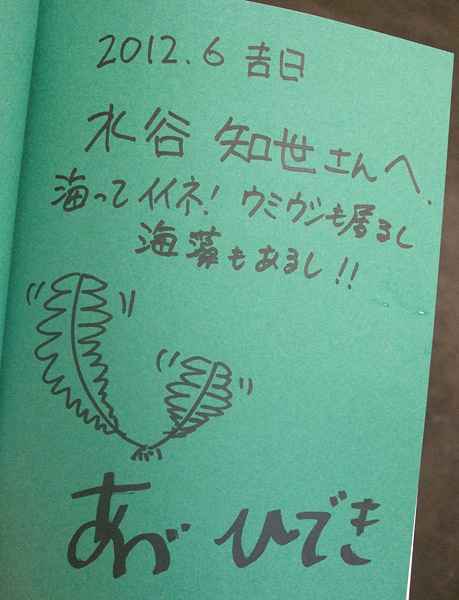 2012.6 吉日
水谷 知世さんへ.
海ってイイネ! ウミウシも居るし
海藻もあるし!!
あづ ひでき